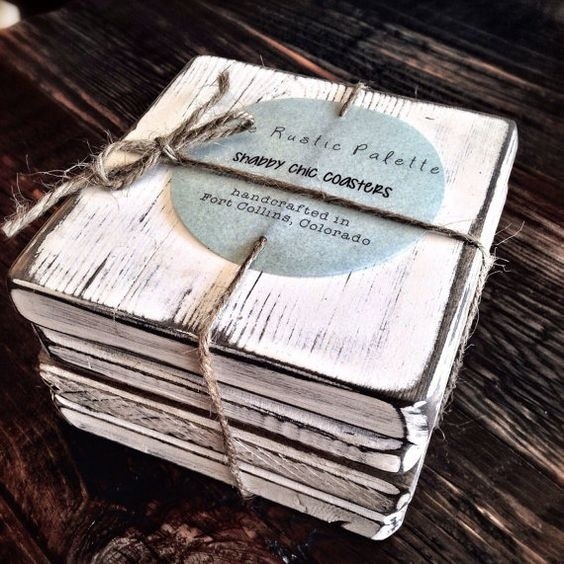 e Rustic Palette
shabby chic coasters
handcrafted in
Fort Collins, Colorado